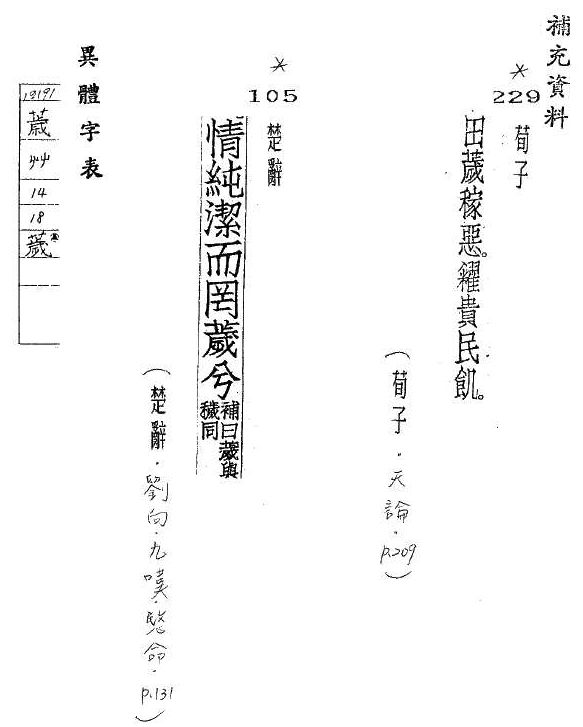 補充資料
*
229
荀子
田薉稼惡。糴貴民飢。
(荀子．天論．p.209)
*
105
楚辭
情純潔而罔薉兮
補曰薉與
穢同
(楚辭．劉向．九嘆．愍命．p.131)
異體字表
13191
艸
14
18
薉